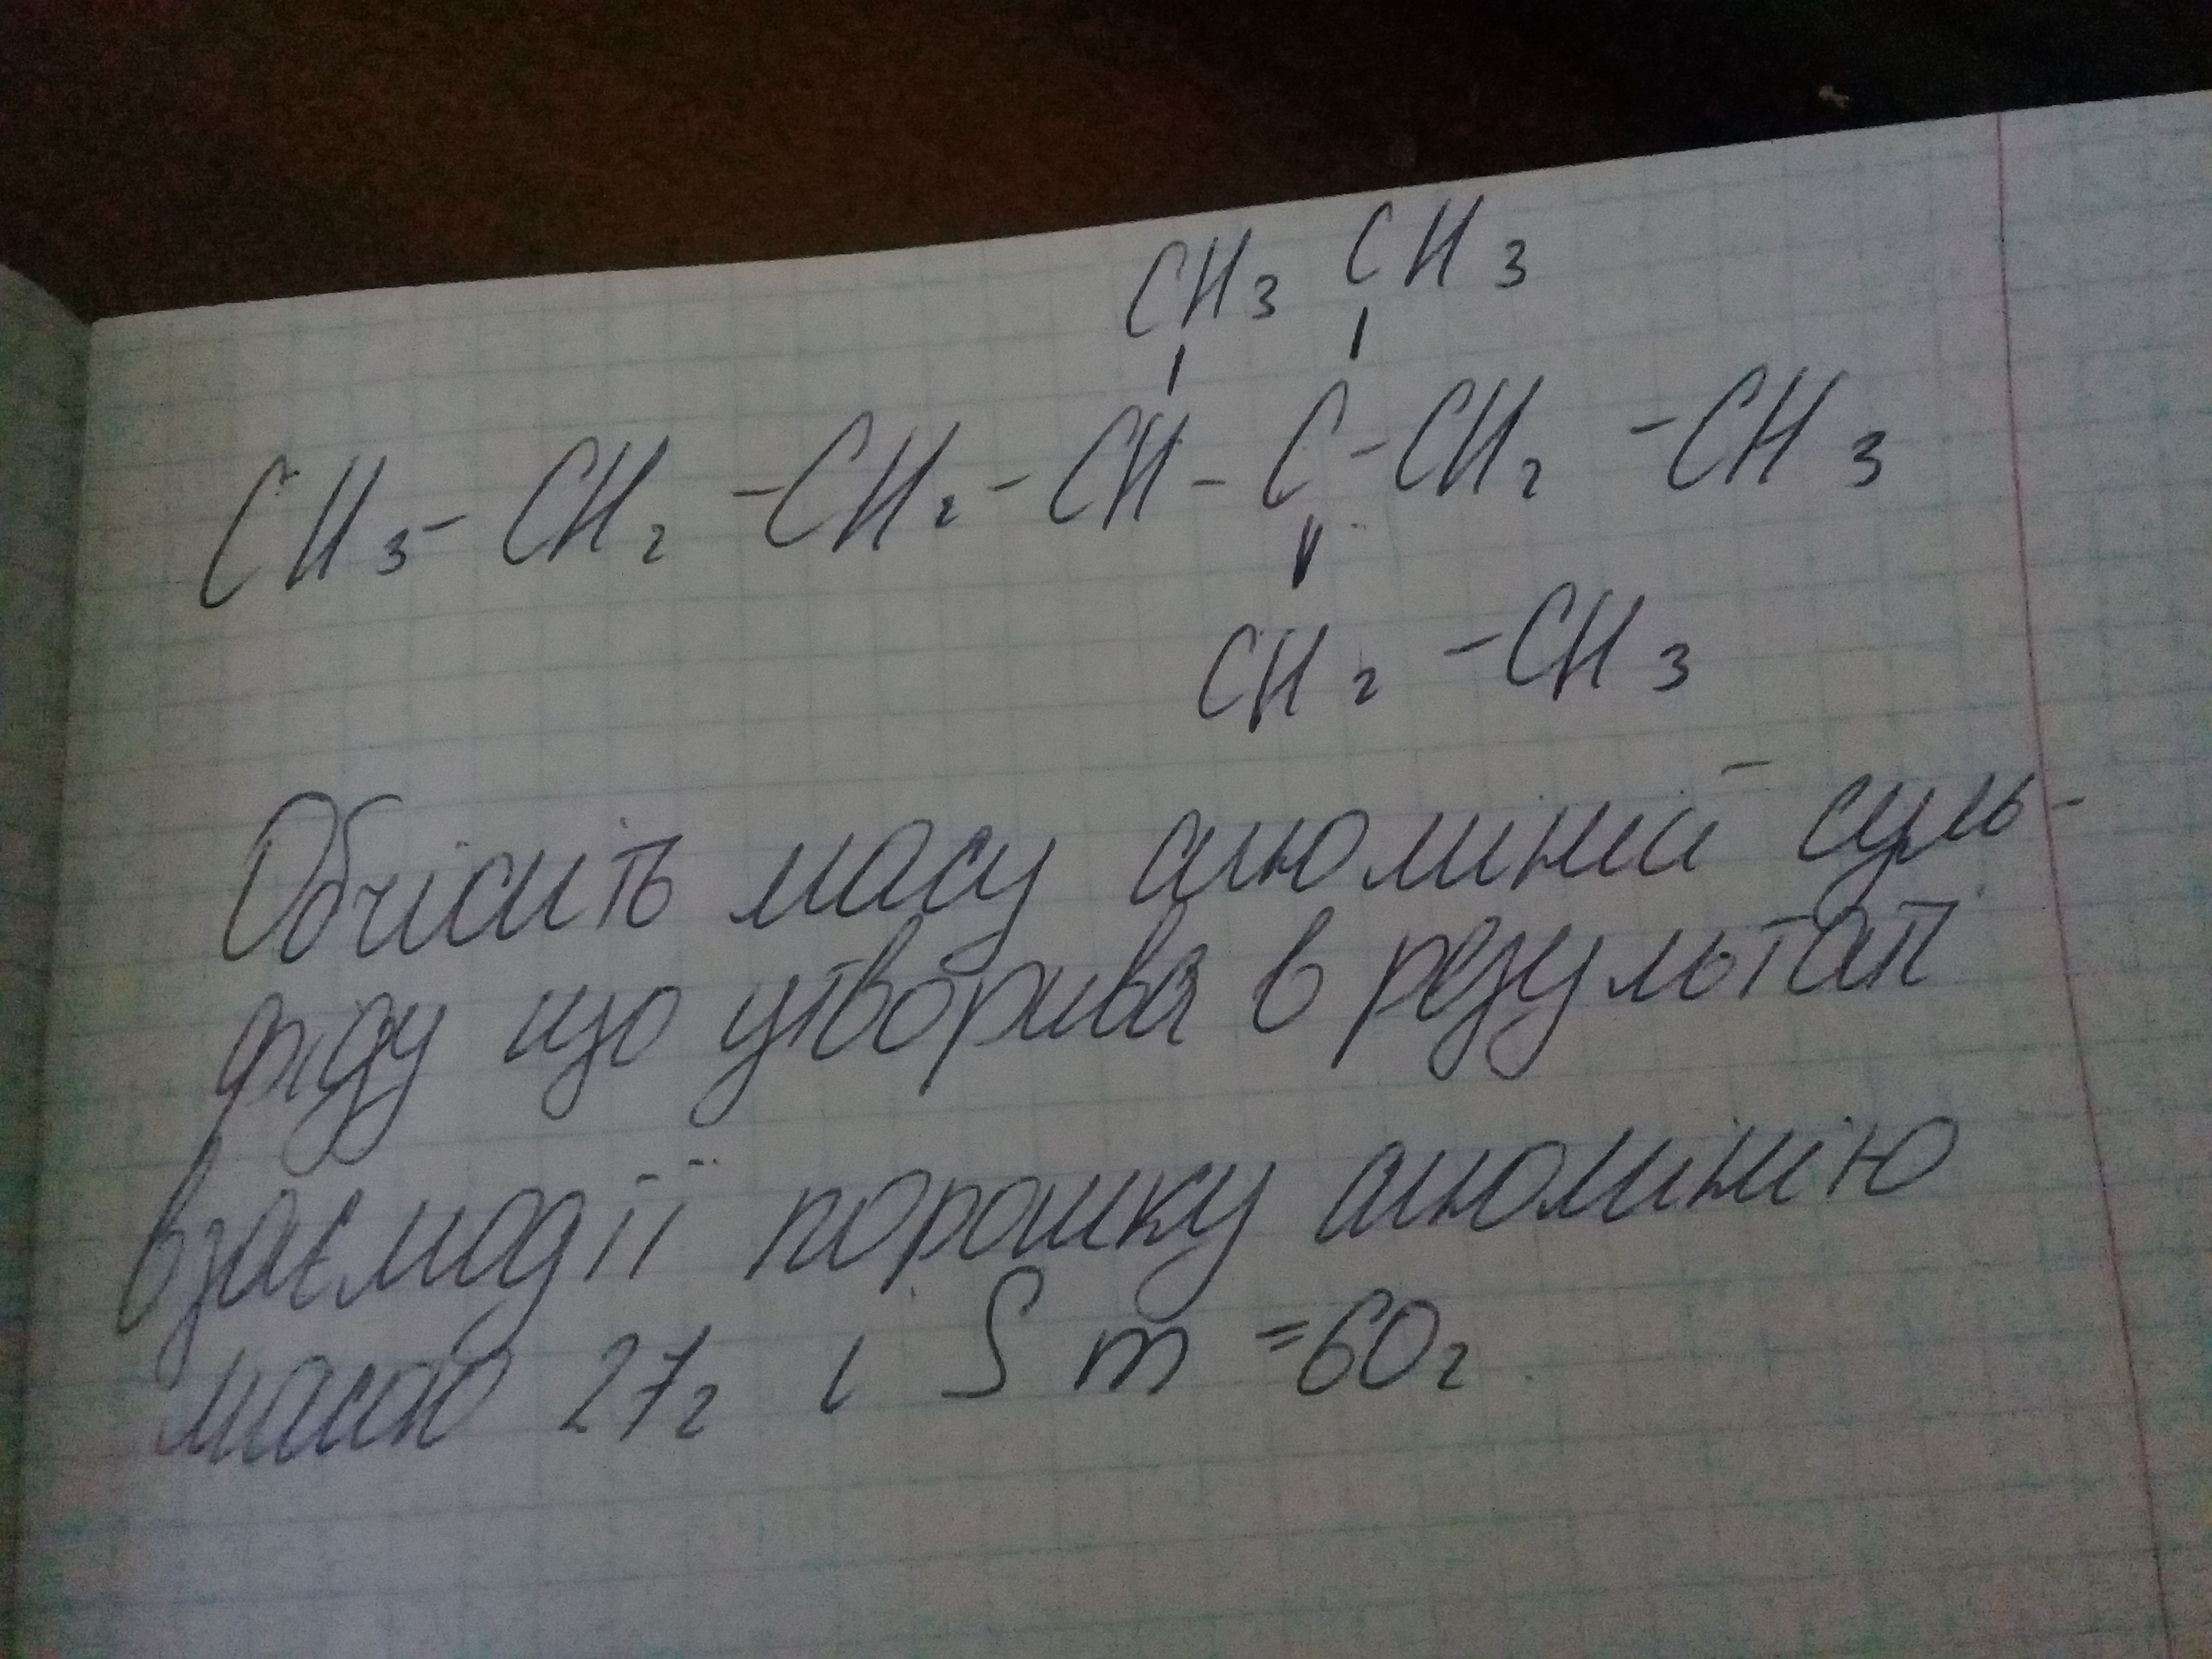 CH3 CH3
CH3-CH2-CH2-CH-C-CH2-CH3
CH2-CH3
Обчісить масу алюміній суль-
фіду що утворивсь в результаті
взаємодії порошку алюмінію
масою 27г і S m =60г